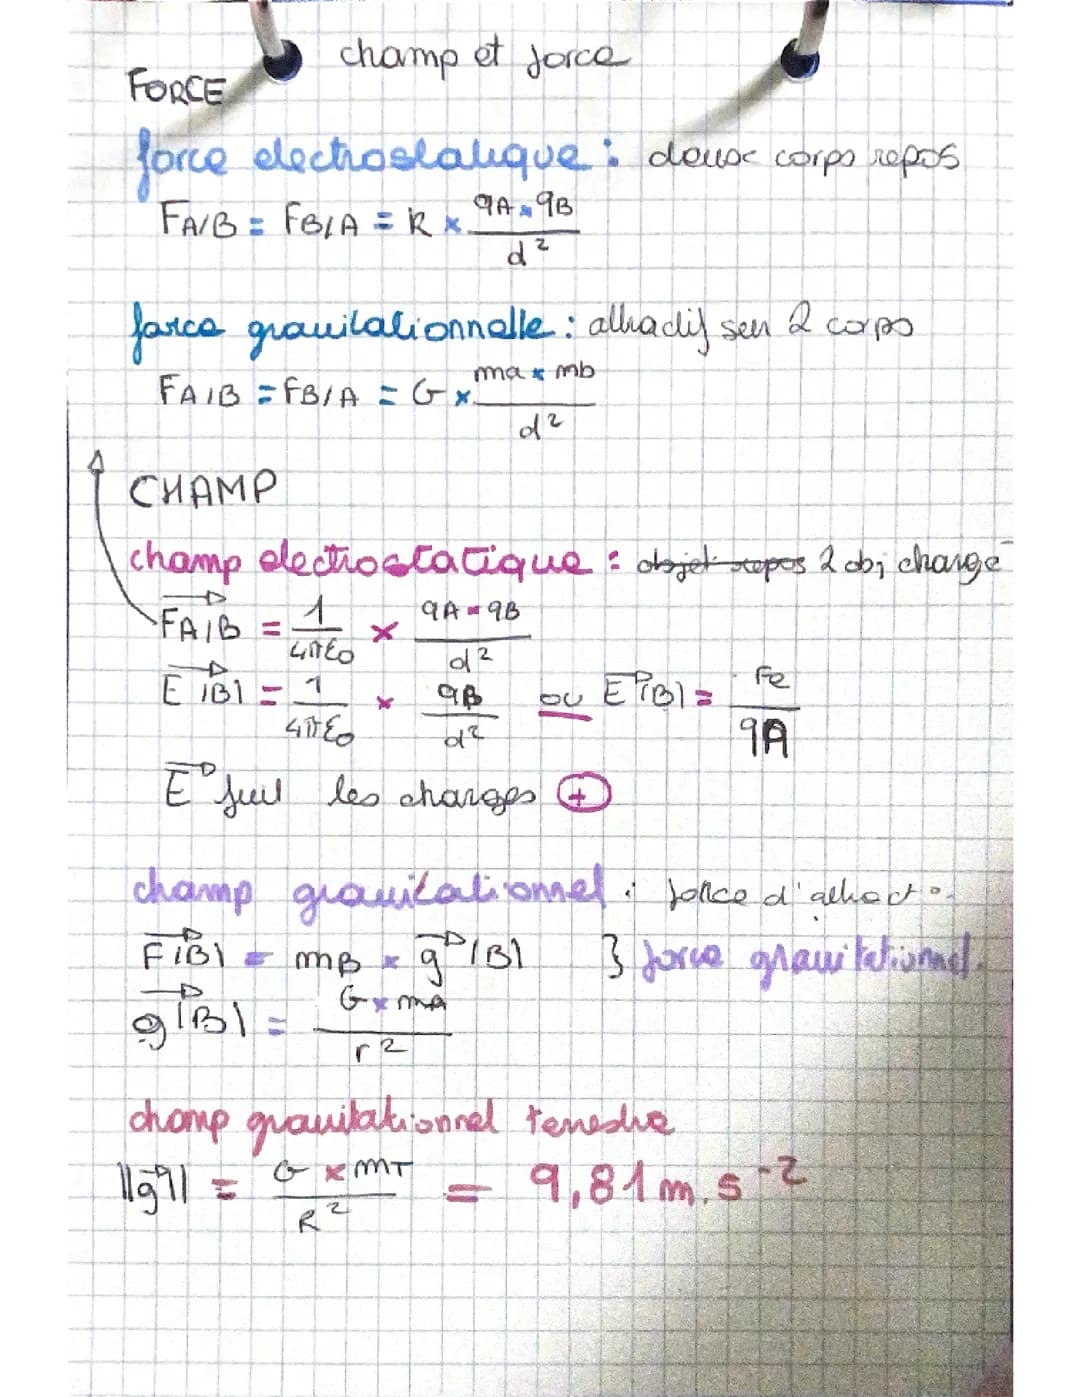 champ et force
FORCE
force electrostatique : deux corps repos
FA/B = FB/A = k × qA × qB / d²
force gravitationnelle : attractif sur 2 corps
FA/B = FB/A = G × ma × mb / d²
CHAMP
champ electrostatique : objet repos 2 obj chargé
FA/B = 1/4πε0 × qA × qB / d²
E(B) = 1/4πε0 × qB / d² ou E(B) = Fe / qA
E fuit les charges +
champ gravitationnel : force d'attract°
F(B) = mB × g(B) } force gravitationnel.
g(B) = G × mA / r²
champ gravitationnel terrestre
||g|| = G × mT / R² = 9,81 m.s-2